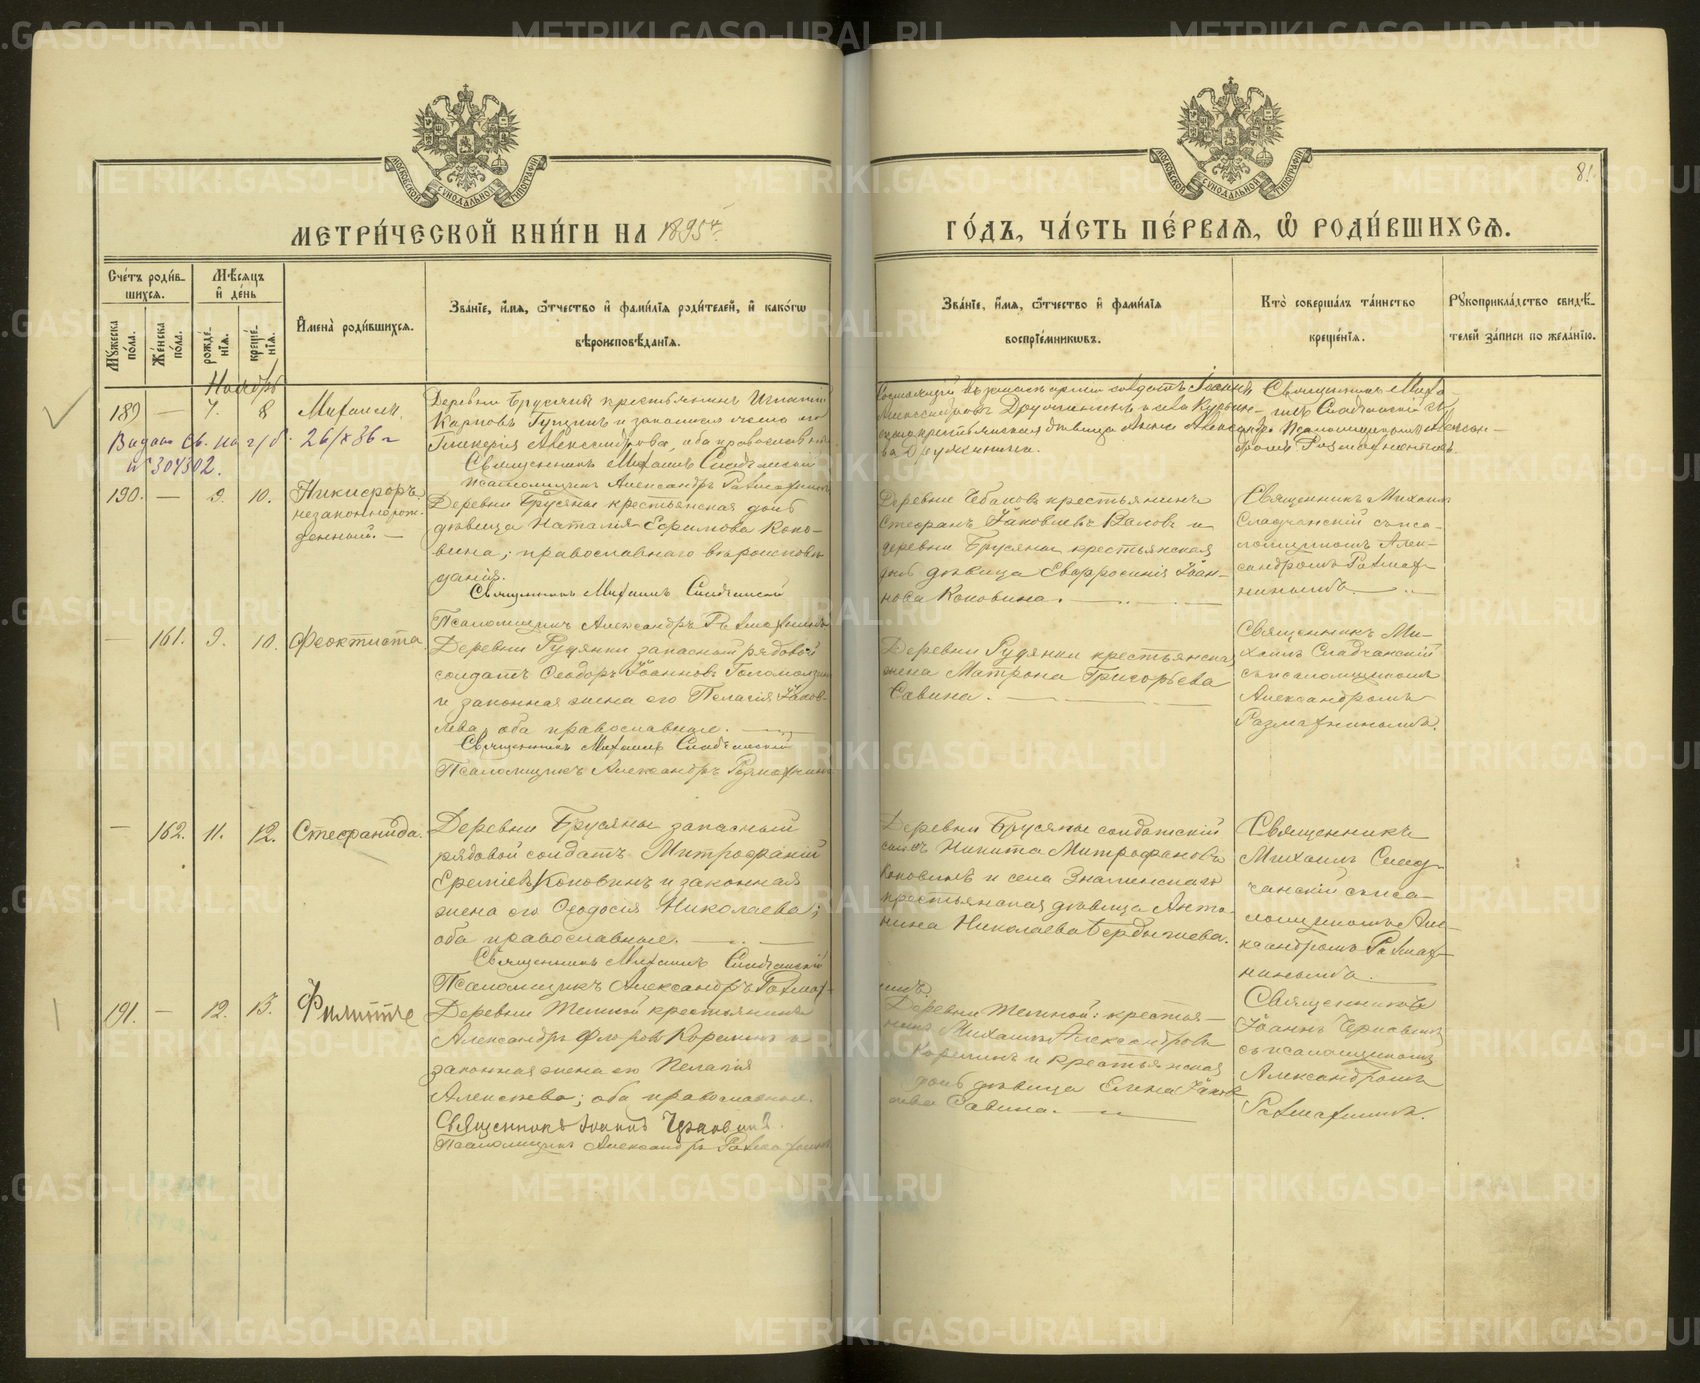 МЕТРИ́ЧЕСКОЙ КНИ́ГИ НА 1895 й
ГО́ДЪ, ЧА́СТЬ ПЕ́РВАѦ, Ѡ҆ РОДИ́ВШИХСѦ.
81.
МОСКОВСКОЙ СѴНОДАЛЬНОЙ ТИПОГРАФІИ
МОСКОВСКОЙ СѴНОДАЛЬНОЙ ТИПОГРАФІИ
Сче́тъ роди́в-
шихсѧ.
Мꙋ́жеска по́ла.
Же́нска по́ла.
Мѣ́сѧцъ
и҆ де́нь
рожде́-
нїѧ.
креще́-
нїѧ.
И҆мена̀ роди́вшихсѧ.
Зва́нїе, и҆́мѧ, ѻ҆́тчество и҆ фами́лїѧ роди́телей, и҆ како́гѡ
вѣроисповѣ́данїѧ.
Зва́нїе, и҆́мѧ, ѻ҆́тчество и҆ фами́лїѧ
воспрїе́мникѡвъ.
Кто̀ соверша́лъ та́инство
креще́нїѧ.
Рꙋкоприкла́дство свидѣ́-
телей за́писи по жела́нїю.
Ноябрь
189 — 7. 8 Михаилъ.
Деревни Брусяны крестьянинъ Игнатій
Карповъ и законная жена его
Гликерія Александрова, оба православные
Священникъ Михаилъ Сладчанскій
Псаломщикъ Александръ Размахнинъ
Состоящій въ запасѣ арміи солдатъ Іоаннъ
Александровъ Дружининъ и села
крестьянская дѣвица Анна Александро-
ва Дружинина.
Священникъ Миха-
илъ Сладчанскій съ
псаломщикомъ Алексан-
дромъ Размахнинымъ.
Видано св. на г/б. 26/X 36 г
№ 304302.
190. — 9. 10. Никифоръ
незаконнорож-
денный. —
Деревни Брусяны крестьянская дочь
дѣвица Наталія Ефимова Коко-
вина; православнаго вѣроисповѣ-
данія.
Священникъ Михаилъ Сладчанскій
Псаломщикъ Александръ Размахнинъ
Деревни Чебаковъ крестьянинъ
Стефанъ Іаковлевъ и
деревни Брусяны крестьянская
дочь дѣвица Евфросинія Іоан-
нова Коковина.
Священникъ Михаилъ
Сладчанскій съ пса-
ломщикомъ Алек-
сандромъ Размах-
нинымъ.
— 161. 9. 10. Феоктиста
Деревни Гудянки запасный рядовой
солдатъ Ѳеодоръ Іоанновъ
и законная жена его Пелагія Іаков-
лева, оба православные.
Священникъ Михаилъ Сладчанскій
Псаломщикъ Александръ Размахнинъ
Деревни Гудянки крестьянская
жена Матрона Григорьева
Савина.
Священникъ Ми-
хаилъ Сладчанскій
съ псаломщикомъ
Александромъ
Размахнинымъ.
— 162. 11. 12. Стефанида.
Деревни Брусяны запасный
рядовой солдатъ Митрофаній
Еремѣевъ Коковинъ и законная
жена его Ѳеодосія Николаева;
оба православные.
Священникъ Михаилъ Сладчанскій
Псаломщикъ Александръ Размах-
нинъ.
Деревни Брусяны солдатскій
сынъ Никита Митрофановъ
Коковинъ и села Знаменскаго
крестьянская дѣвица Анто-
нина Николаева Бердышева.
Священникъ
Михаилъ Слад-
чанскій съ пса-
ломщикомъ Але-
ксандромъ Размах-
нинымъ.
191. — 12. 13. Филиппъ
Деревни Темной крестьянинъ
Александръ Флоровъ Корелинъ и
законная жена его Пелагія
Алексѣева; оба православные.
Священникъ Іоаннъ
Псаломщикъ Александръ Размахнинъ
Деревни Темной: крестья-
нинъ Михаилъ Александровъ
Корелинъ и крестьянская
дочь дѣвица Елена Іаков-
лева Савина.
Священникъ
Іоаннъ
съ псаломщикомъ
Александромъ
Размахнинымъ.